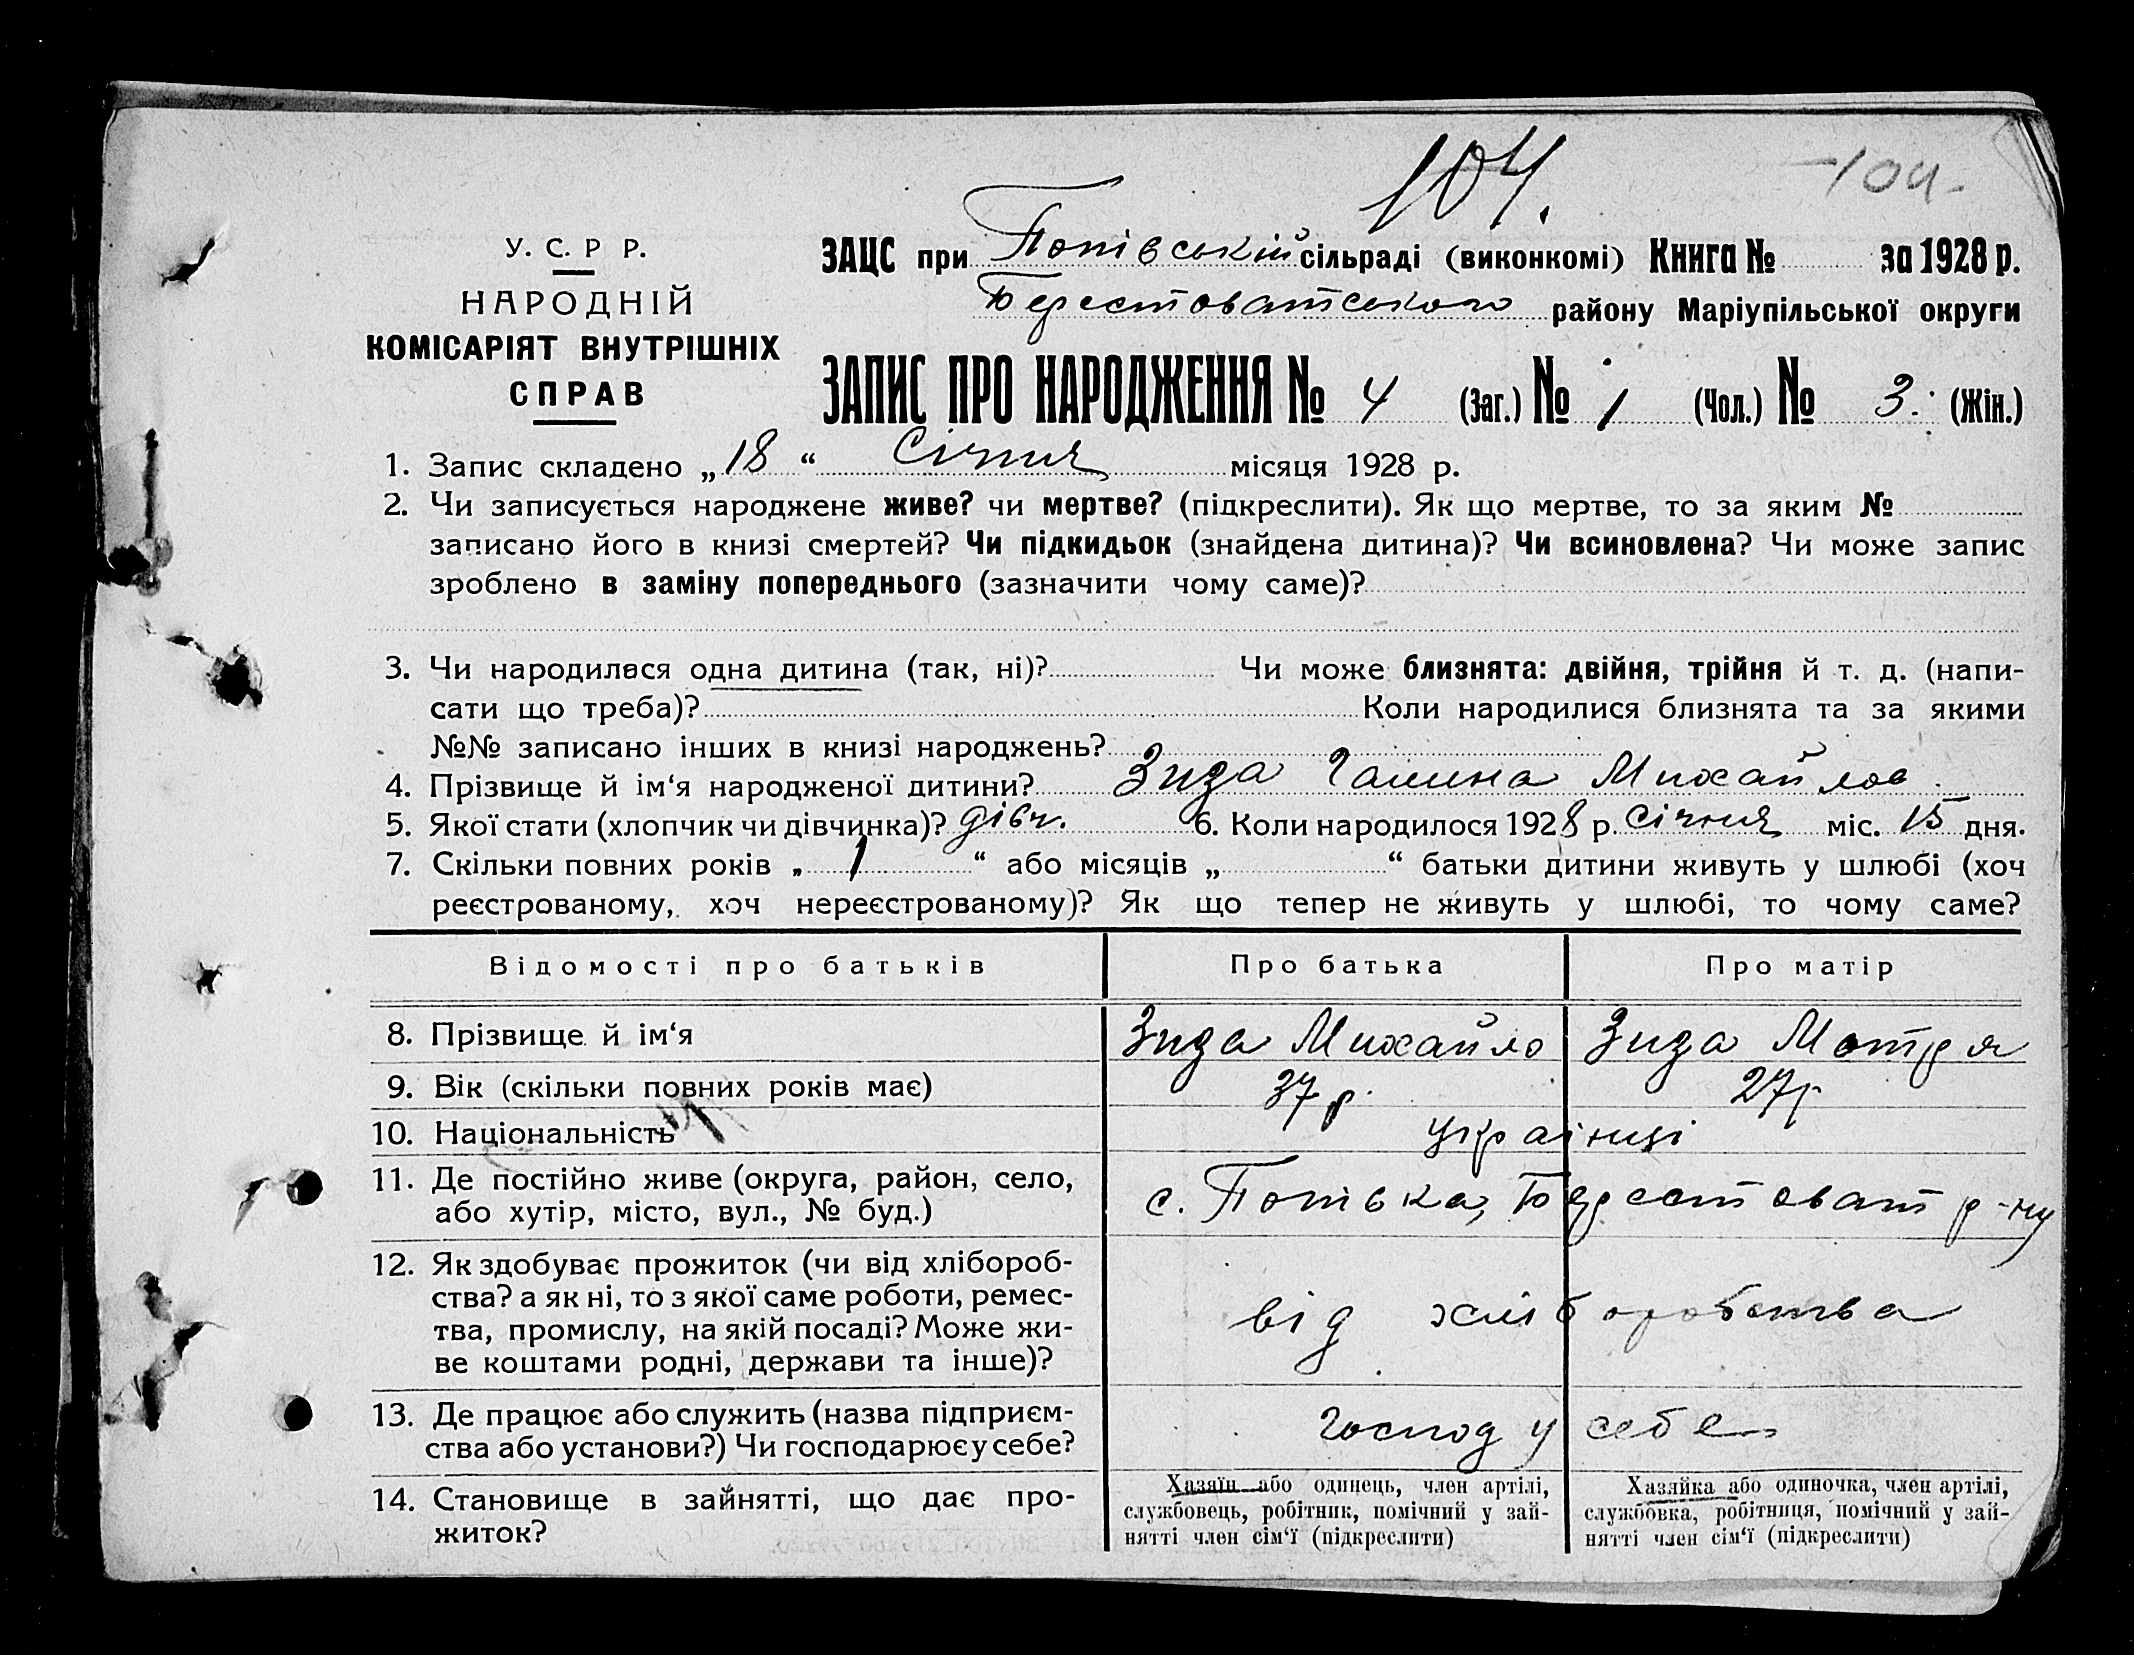 104.
-104-
У. С. Р Р.
НАРОДНІЙ
КОМІСАРІЯТ ВНУТРІШНІХ
СПРАВ
ЗАЦС при Попівській сільраді (виконкомі) Книга № за 1928 р.
Берестоватського району Маріупільської округи
ЗАПИС ПРО НАРОДЖЕННЯ № 4 (Заг.) № 1 (Чол.) № 3. (Жін.)
1. Запис складено „18“ Січня місяця 1928 р.
2. Чи записується народжене живе? чи мертве? (підкреслити). Як що мертве, то за яким №
записано його в книзі смертей? Чи підкидьок (знайдена дитина)? Чи всиновлена? Чи може запис
зроблено в заміну попереднього (зазначити чому саме)?
3. Чи народилася одна дитина (так, ні)? Чи може близнята: двійня, трійня й т. д. (напи-
сати що треба)? Коли народилися близнята та за якими
№№ записано інших в книзі народжень?
4. Прізвище й ім‘я народженої дитини? Зиза Галина Михайлов.
5. Якої стати (хлопчик чи дівчинка)? дівч. 6. Коли народилося 1928 р. Січня міс. 15 дня.
7. Скільки повних років „ 1 “ або місяців „ “ батьки дитини живуть у шлюбі (хоч
реєстрованому, хоч нереєстрованому)? Як що тепер не живуть у шлюбі, то чому саме?
Відомості про батьків Про батька Про матір
8. Прізвище й ім‘я Зиза Михайло Зиза Мотря
9. Вік (скільки повних років має) 37 р. 27 р
10. Національність українці
11. Де постійно живе (округа, район, село,
або хутір, місто, вул., № буд.) с. Попівка, Берестоват р-ну
12. Як здобуває прожиток (чи від хлібороб-
ства? а як ні, то з якої саме роботи, ремес-
тва, промислу, на якій посаді? Може жи-
ве коштами родні, держави та інше)?
від хліборобства
13. Де працює або служить (назва підприєм-
ства або установи?) Чи господарює у себе?
господ у себе
14. Становище в зайнятті, що дає про-
житок?
Хазяїн або одинець, член артілі,
службовець, робітник, помічний у зай-
нятті член сім‘ї (підкреслити)
Хазяйка або одиночка, член артілі,
службовка, робітниця, помічний у зай-
нятті член сім‘ї (підкреслити)